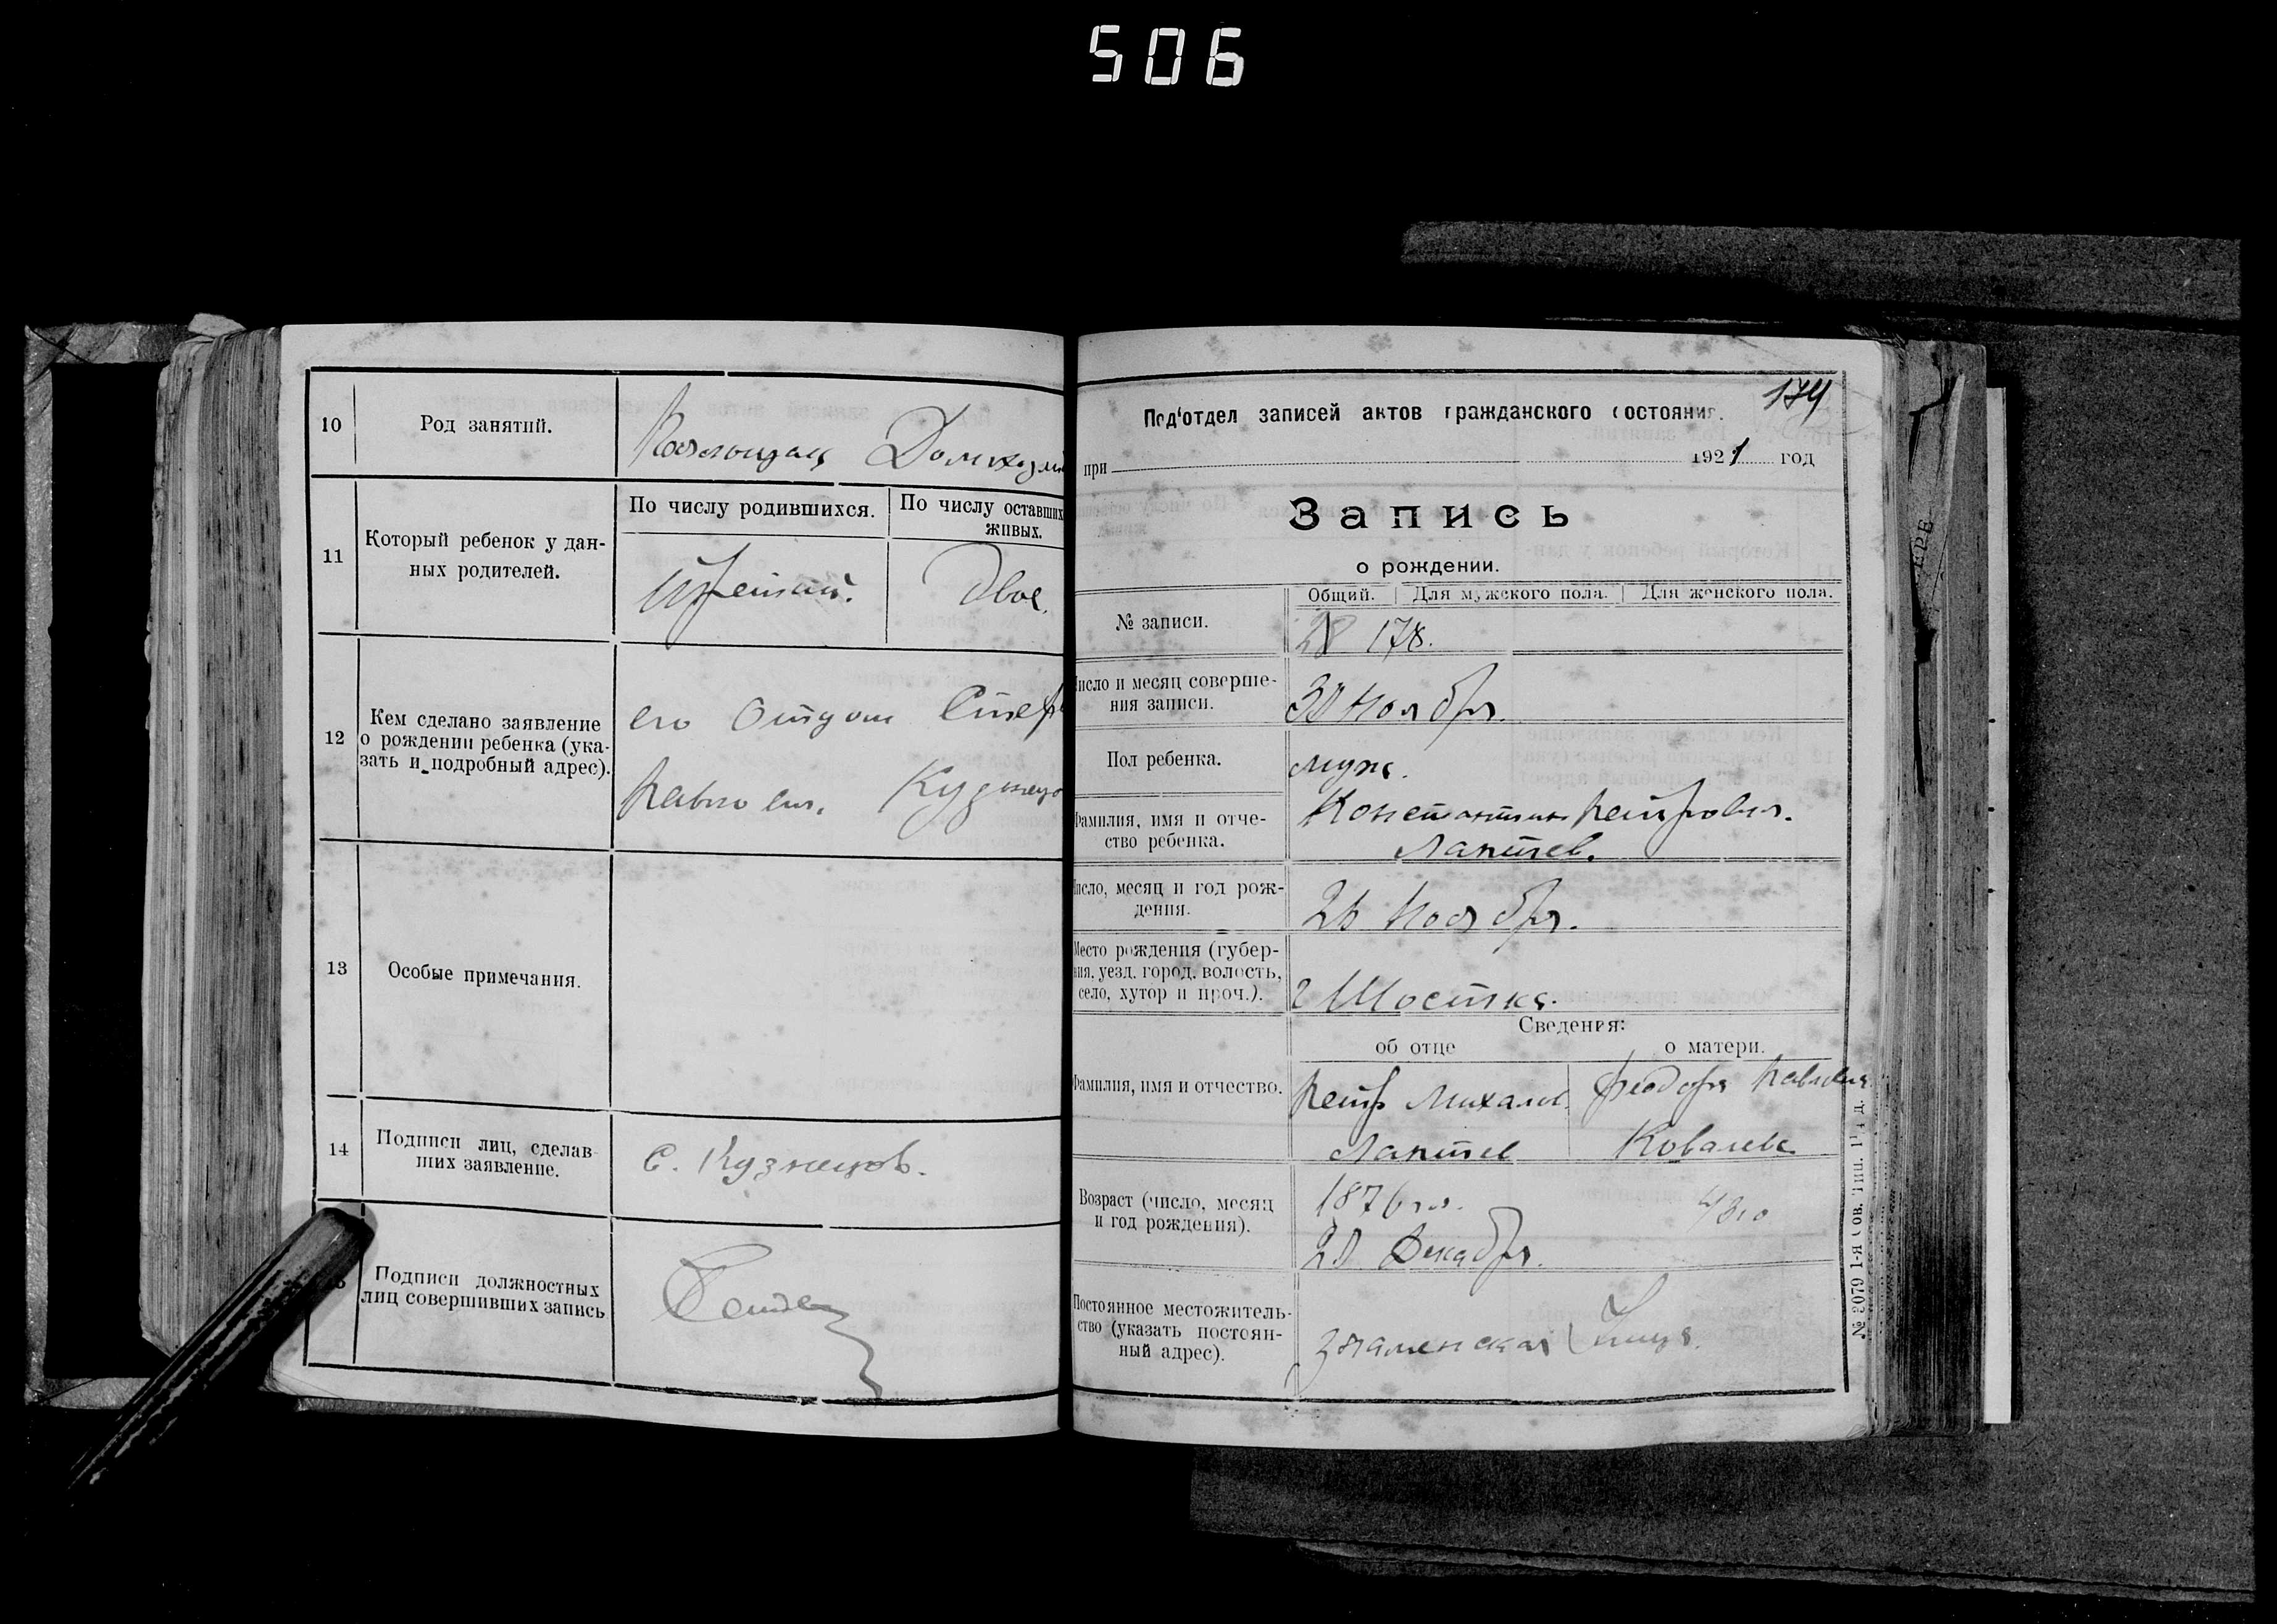 506
10
Род занятий.
11
Который ребенок у дан-
ных родителей.
По числу родившихся.
По числу оставших
живых.
третий.
Двое.
12
Кем сделано заявление
о рождении ребенка (ука-
зать и подробный адрес).
его Отцом
Кузнецо
13
Особые примечания.
14
Подписи лиц, сделав-
ших заявление.
С. Кузнецов.
Подписи должностных
лиц совершивших запись
174
Под'отдел записей актов гражданского состояния.
при
1921 год
Запись
о рождении.
№ записи.
Общий.
Для мужского пола.
Для женского пола.
178.
число и месяц соверше-
ния записи.
30 Ноября.
Пол ребенка.
муж.
Фамилия, имя и отче-
ство ребенка.
Константин Петрович.
Лаптев.
число, месяц и год рож-
дения.
26 Ноября.
Место рождения (губер-
ния, уезд, город, волость,
село, хутор и проч.).
г Шостка.
Сведения:
об отце
о матери.
Фамилия, имя и отчество.
Петр Михайл.
Лаптев
Феодора Павловна
Ковалева
Возраст (число, месяц
и год рождения).
1876
Декабря.
Постоянное местожитель-
ство (указать постоян-
ный адрес).
Знаменская улица.
№ 2079 1-я Сов. Тип.